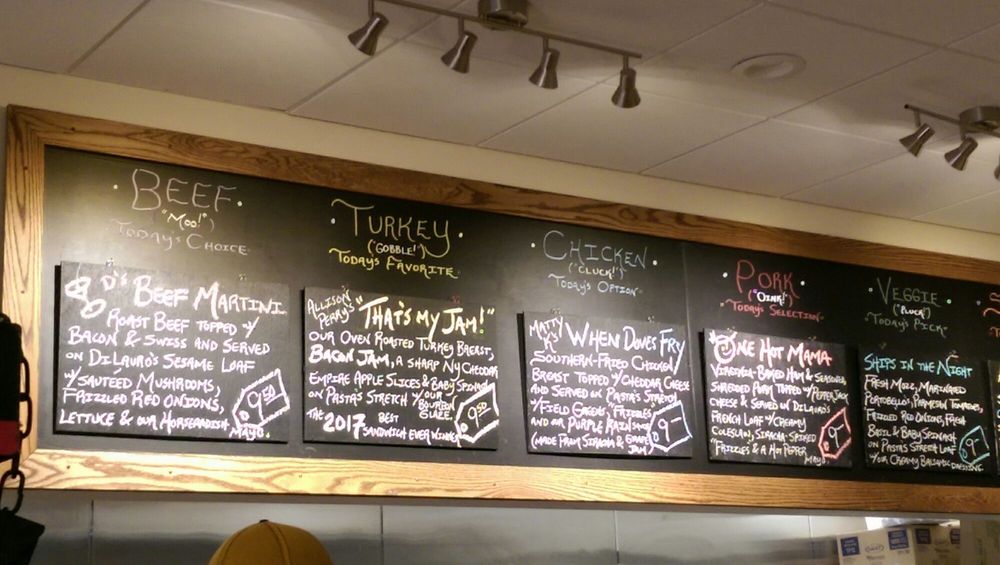 • BEEF •
("Moo!")
Today's Choice
D's BEEF MARTINI
ROAST BEEF TOPPED W/
BACON & SWISS AND SERVED
ON DILAURO'S SESAME LOAF
W/SAUTÉED MUSHROOMS,
FRIZZLED RED ONIONS,
LETTUCE & OUR HORSERADISH
MAYO.
9.50
• TURKEY •
("GOBBLE!")
TODAY'S FAVORITE
ALLISON PERRY'S "THAT'S MY JAM!"
OUR OVEN ROASTED TURKEY BREAST,
BACON JAM, A SHARP NY CHEDDAR
EMPIRE APPLE SLICES & BABY SPINACH
ON PASTA'S STRETCH W/OUR
BOURBON
GLAZE
THE 2017 BEST
SANDWICH EVER WINNER
9.50
• CHICKEN •
("CLUCK!")
TODAY'S OPTION
MATTY K'S WHEN DOVES FRY
SOUTHERN-FRIED CHICKEN
BREAST TOPPED W/CHEDDAR CHEESE
AND SERVED ON PASTA'S STRETCH
W/FIELD GREENS, FRIZZLES
AND OUR PURPLE RAIN SAUCE
(MADE FROM SIRACHA & GRAPE
JAM)
9-
• PORK •
("OINK!")
TODAY'S SELECTION
"ONE HOT MAMA
VIRGINIA-BAKED HAM & SEASONED,
SHREDDED PORK TOPPED W/PEPPER JACK
CHEESE & SERVED ON DILAURO'S
FRENCH LOAF W/CREAMY
COLESLAW, SIRACHA-SPIKED
FRIZZLES & A HOT PEPPER
MAYO
9-
• VEGGIE •
("PLUCK!")
TODAY'S PICK
SHIPS IN THE NIGHT
FRESH MOZZ, MARINATED
PORTOBELLO, PARMESAN TOMATOES,
FRIZZLED RED ONIONS, FRESH
BASIL & BABY SPINACH
ON PASTA'S STRETCH LOAF
W/OUR CREAMY BALSAMIC DRESSING
9-